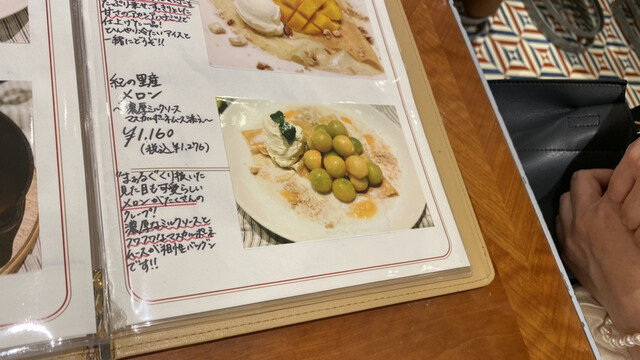 仕上げた一品!
ひんやり冷たいアイスと
一緒にどうぞ!!
紀の里産
メロン
濃厚ミルクソース
マスカルポーネムース添え～
¥1,160
(税込¥1,276)
まぁるくくり抜いた
見た目も可愛らしい
メロンがたくさんの
クレープ!
濃厚なミルクソースと
フワフワなマスカルポーネ
ムースが相性バツグン
です!!